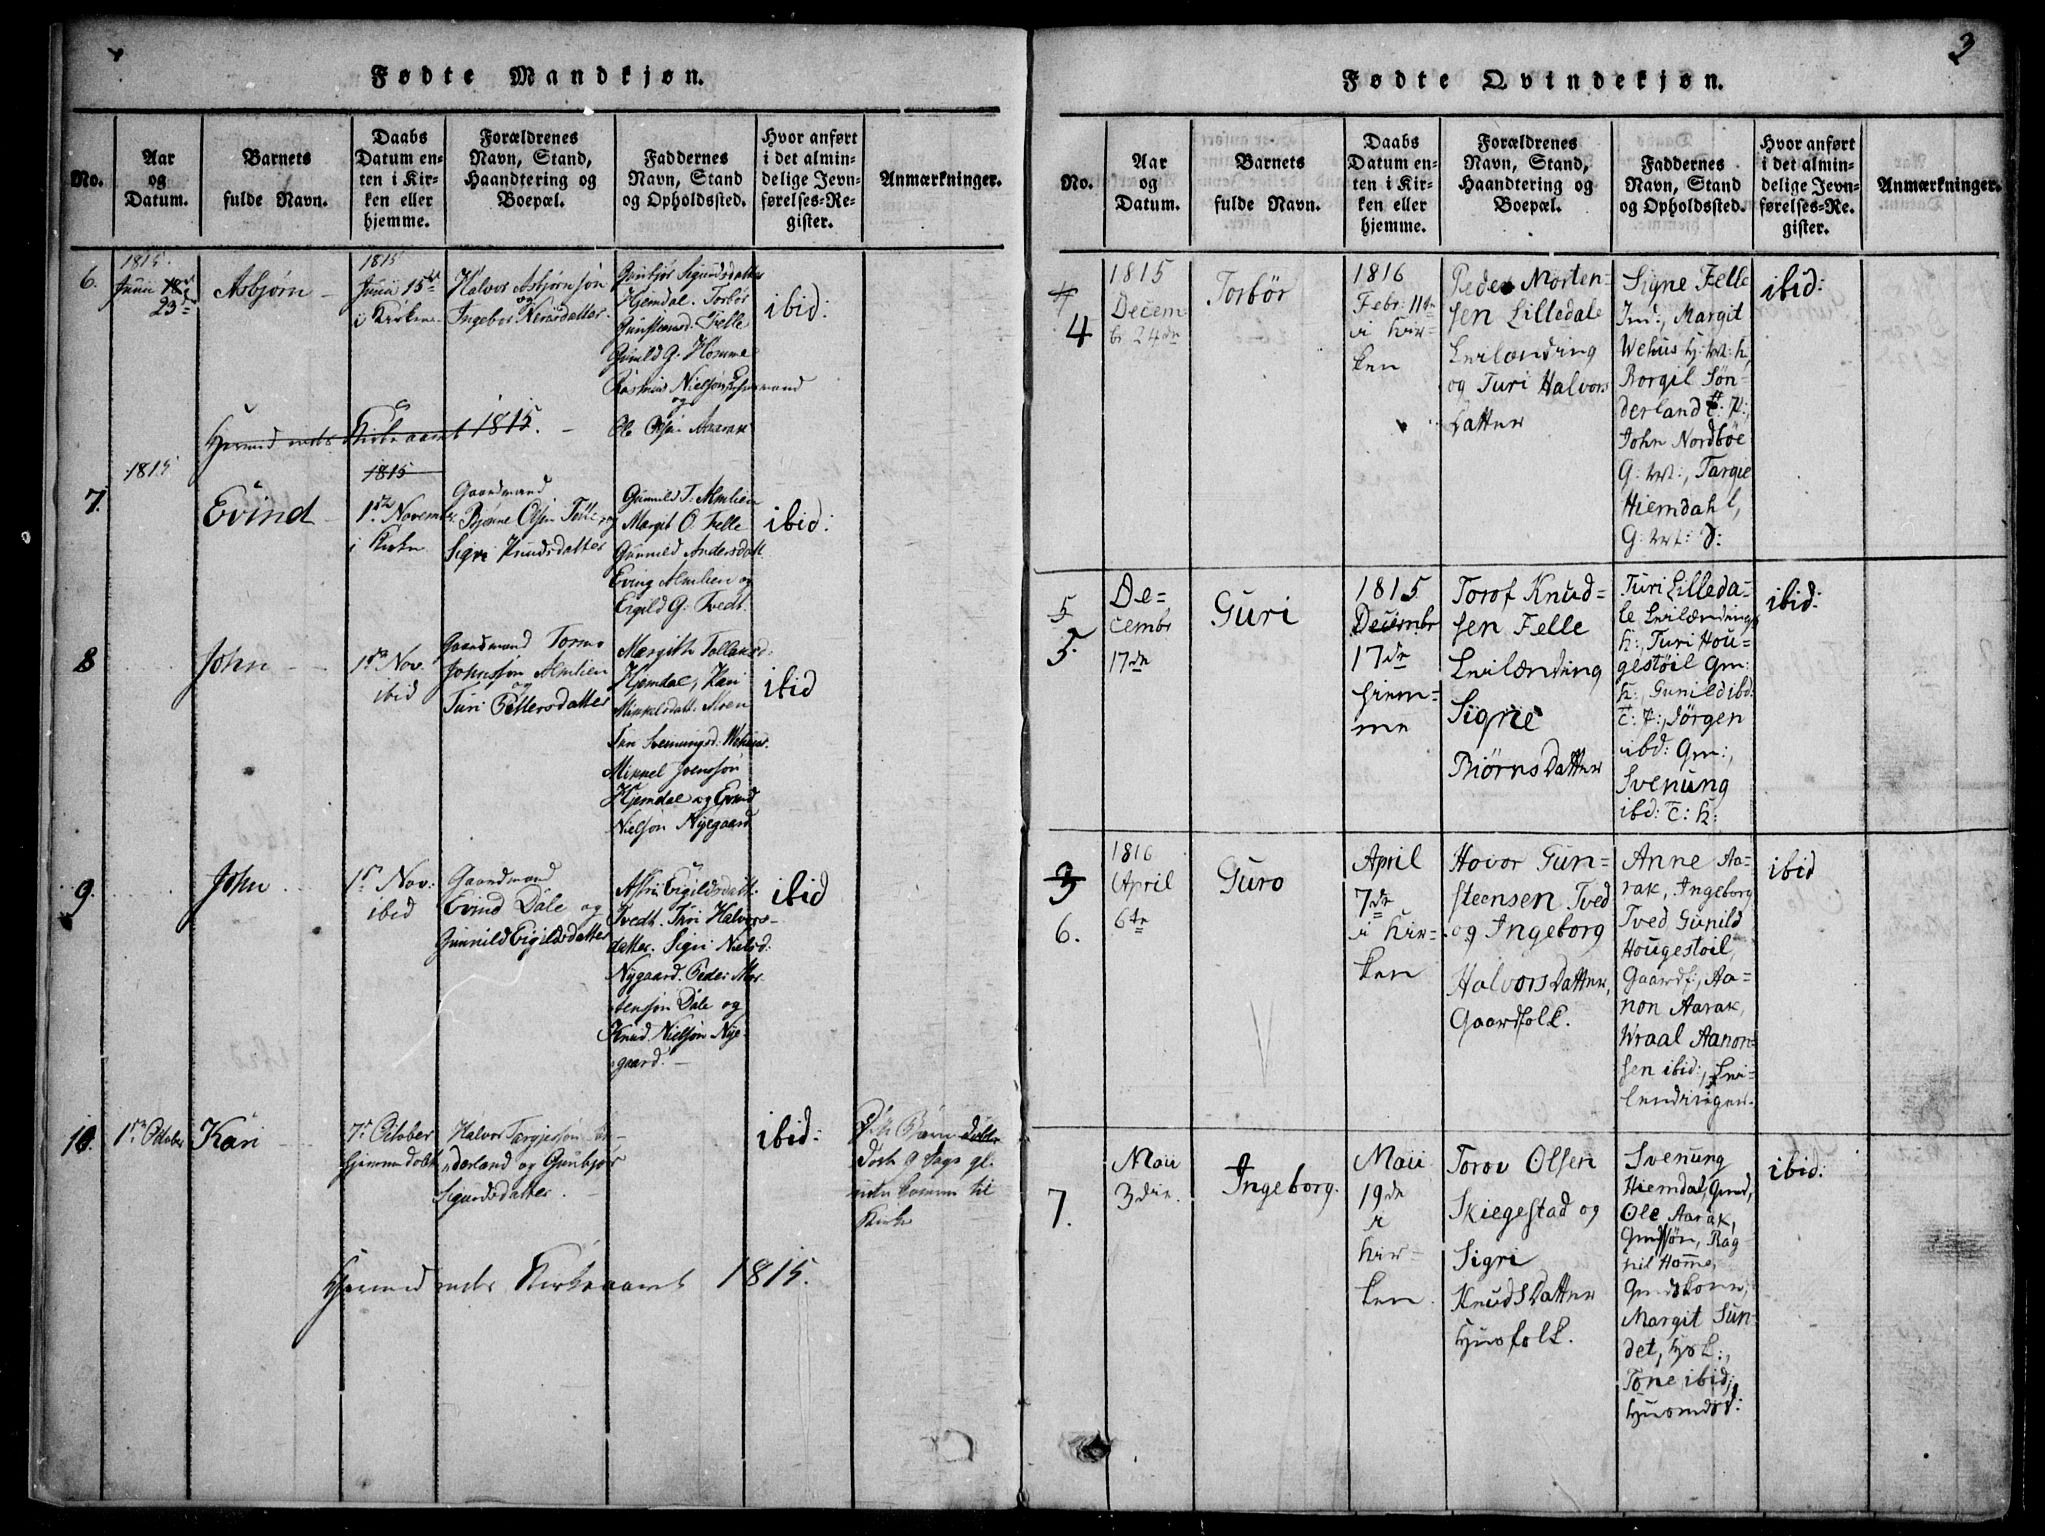 Fødte Mandkjøn.
No.
Aar
og
Datum.
Barnets
fulde Navn.
Daabs
Datum en-
ten i Kir-
ken eller
hjemme.
Forældrenes
Navn, Stand,
Haandtering og
Boepæl.
Faddernes
Navn, Stand
og Opholdssted.
Hvor anført
i det almin-
delige Jevn-
førelses-Re-
gister.
Anmærkninger.
6.
1815.
Junii
23d
Asbjørn
1815
Junii 15de
i Kirken
Halvor Asbjørnsøn
og
Ingebor
Gunbjør Sigurdsdatter
Hjemdal. Torbør
Felle
Gunild G. Homme
Rasmus Nielsøn
og
Ole Olsøn Aarak
ibid:
1815.
7.
1815
Evind
1815
1ste Novemb:
i Kirken
Gaardmand
Bjønne Olsen
Sigri Knudsdatter
Gunnild T. Almlien
Margit O. Felle
Gunnild Andersdatt
Eving Almlien og
Eigild G. Tvedt.
ibid:
8
John
1ste Nov.
ibid
Gaardmand Tormo
Johnssøn Almlien
og
Turi Pettersdatter
Margith
Hjemdal, Kari
Mikkelsdatt: Moen
Svenungsd: Wehuus.
Mikkel Jvenssøn
Hjemdal og Evind
Nielsøn Nyegaard
ibid
9.
John
1ste Nov:
ibid
Gaardmand
Evind Dale og
Gunnild Eigildsdatter
Eigildsdatt.
Tvedt. Turi Halvors-
datter. Sigri Nielsd.
Nygaard. Peder Mor-
tensøn Dale og
Knud Nielsøn Nye-
gaard.
ibid
10.
1ste October
Kari
7de October
hjemmedøbt
Halvor Targjersøn
derland og Gunbjør
Sigurdsdatter.
ibid:
Barn
til
Kirke
1815.
3
Fødte Qvindekjøn.
No.
Aar
og
Datum.
Barnets
fulde Navn.
Daabs
Datum en-
ten i Kir-
ken eller
hjemme.
Forældrenes
Navn, Stand,
Haandtering og
Boepæl.
Faddernes
Navn, Stand
og Opholdssted.
Hvor anført
i det almin-
delige Jevn-
førelses-Re-
gister.
Anmærkninger.
4
1815
Decem-
br 24de
Torbör
1816
Febr: 11te
i Kir-
ken
Peder Morten-
sen Lilledale
Leilænding
og Turi Halvors
Datter
Signe Felle
Ind:, Margit
Wehus H: h,
Borgil Søn-
derland
John Nordbøe
G: Targie
Hiemdahl,
G: d:
ibid:
5
5.
De-
cembr
17de
Guri
1815
Decembr
17de
hiem-
me
Torof Knud-
sen Felle
Leilænding
Signe
Biørns Datter
Turi Lilleda-
le Leilændings
k:, Turi Hou-
gestøil Gm:
k:, Gunild ibd:
Jørgen
ibd: Gm:,
Svenung
ibd: c: k:
ibid:
3
6.
1816
April
6te
Guro
April
7de
i Kir-
ken
Hovor Gun-
steensen Tved
og Ingeborg
Halvors Datter,
Gaardfolk.
Anne Aa-
rak, Ingeborg
Tved Gunild
Hougestøil,
Gaardf:, Aa-
non Aarak,
Wraal Aanon-
sen ibid:, Lei-
lendingen.
ibid
7.
Maii
3die.
Ingeborg.
Maii
19de
i
Kir-
ken
Torov Olsen
Skiegestad og
Sigri
Knuds Datter
Husfolk.
Svenung
Hiemdal, Gmd,
Ole Aarak,
Gmdssøn, Rag
nil Homme,
Gmdskone,
Margit Sun-
det, Hsk:,
Tone ibid;
Husmdsd:
ibid: